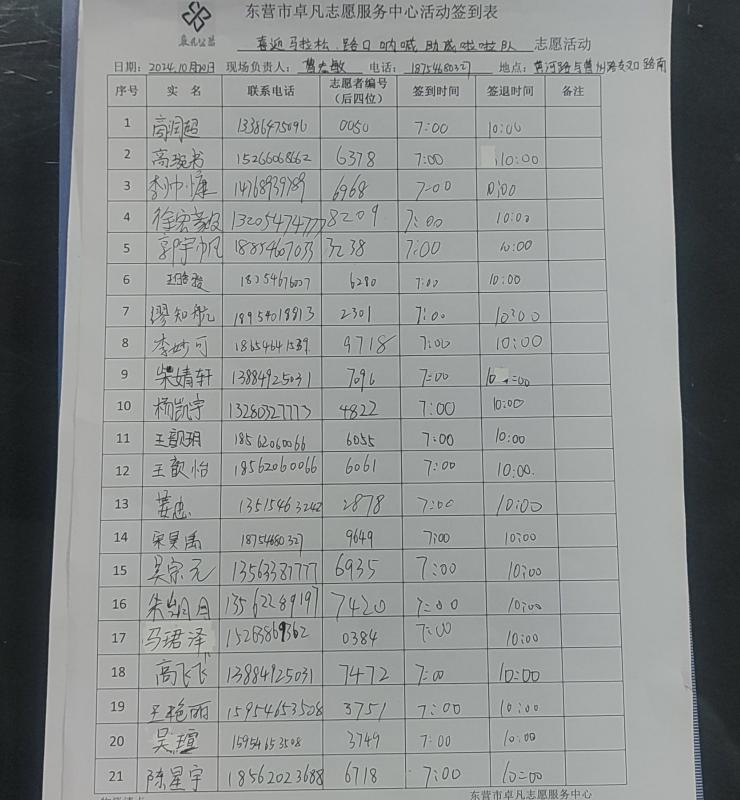 东营市卓凡志愿服务中心活动签到表
卓凡公益 喜迎马拉松、路口呐喊 助威啦啦队 志愿活动
日期：2024.10月20日 现场负责人： 电话：18754680327 地点：黄河路与曹州路交叉口路南
序号 实 名 联系电话 志愿者编号（后四位） 签到时间 签退时间 备注
1 高润超 13386475096 0050 7:00 10:00
2 15266068662 6378 7:00 10:00
3 6968 7:00 10:00
4 13205474777 8209 7:00 10:00
5 郭宇帆 18854667033 3238 7:00 10:00
6 6280 7:00 10:00
7 缪知航 18954018813 2301 7:00 10:00
8 李妙可 18654641539 9718 7:00 10:00
9 柴婧轩 13884925031 7096 7:00 10:00
10 杨凯宇 13280327773 4822 7:00 10:00
11 王韵玥 18562060066 6055 7:00 10:00
12 王歆怡 18562060066 6061 7:00 10:00.
13 13515463242 2878 7:00 10:00
14 宋昊禹 18754680327 9649 7:00 10:00
15 吴宗元 13563387777 6935 7:00 10:00
16 13562289197 7420 7:00 10:00
17 马珺泽 15263869362 0384 7:00 10:00
18 高飞飞 13884925031 7472 7:00 10:00
19 王艳丽 15954653508 3751 7:00 10:00
20 吴瑄 15954653508 3749 7:00 10:00
21 陈星宇 18562023688 6718 7:00 10:00
东营市卓凡志愿服务中心